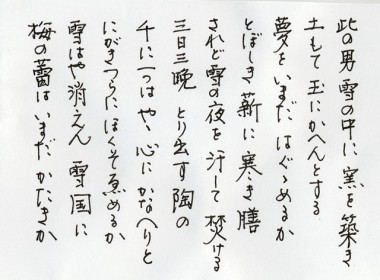 此の男雪の中に窯を築き
土もて玉にかへんとする
夢をいまだはぐゝめるか
とぼしき薪に寒き膳
されど雪の夜を汗して焚ける
三日三晩とり出す陶の
千に一つはやゝ心にかなへりと
にがきつらにほくそ笑めるか
雪はや消えん雪国に
梅の蕾はいまだかたきか